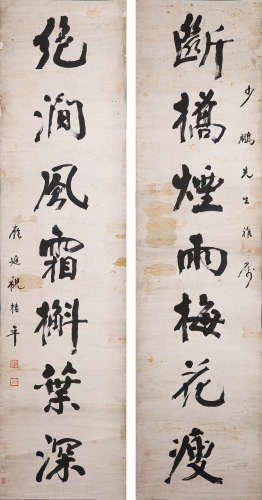 少鵬先生雅屬
斷橋煙雨梅花瘦
絕澗風霜槲葉深
祝椿年